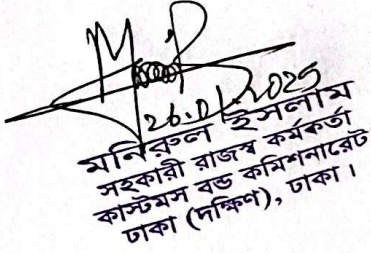 26.01.2025
মনিরুল ইসলাম
সহকারী রাজস্ব কর্মকর্তা
কাস্টমস বন্ড কমিশনারেট
ঢাকা (দক্ষিণ), ঢাকা।